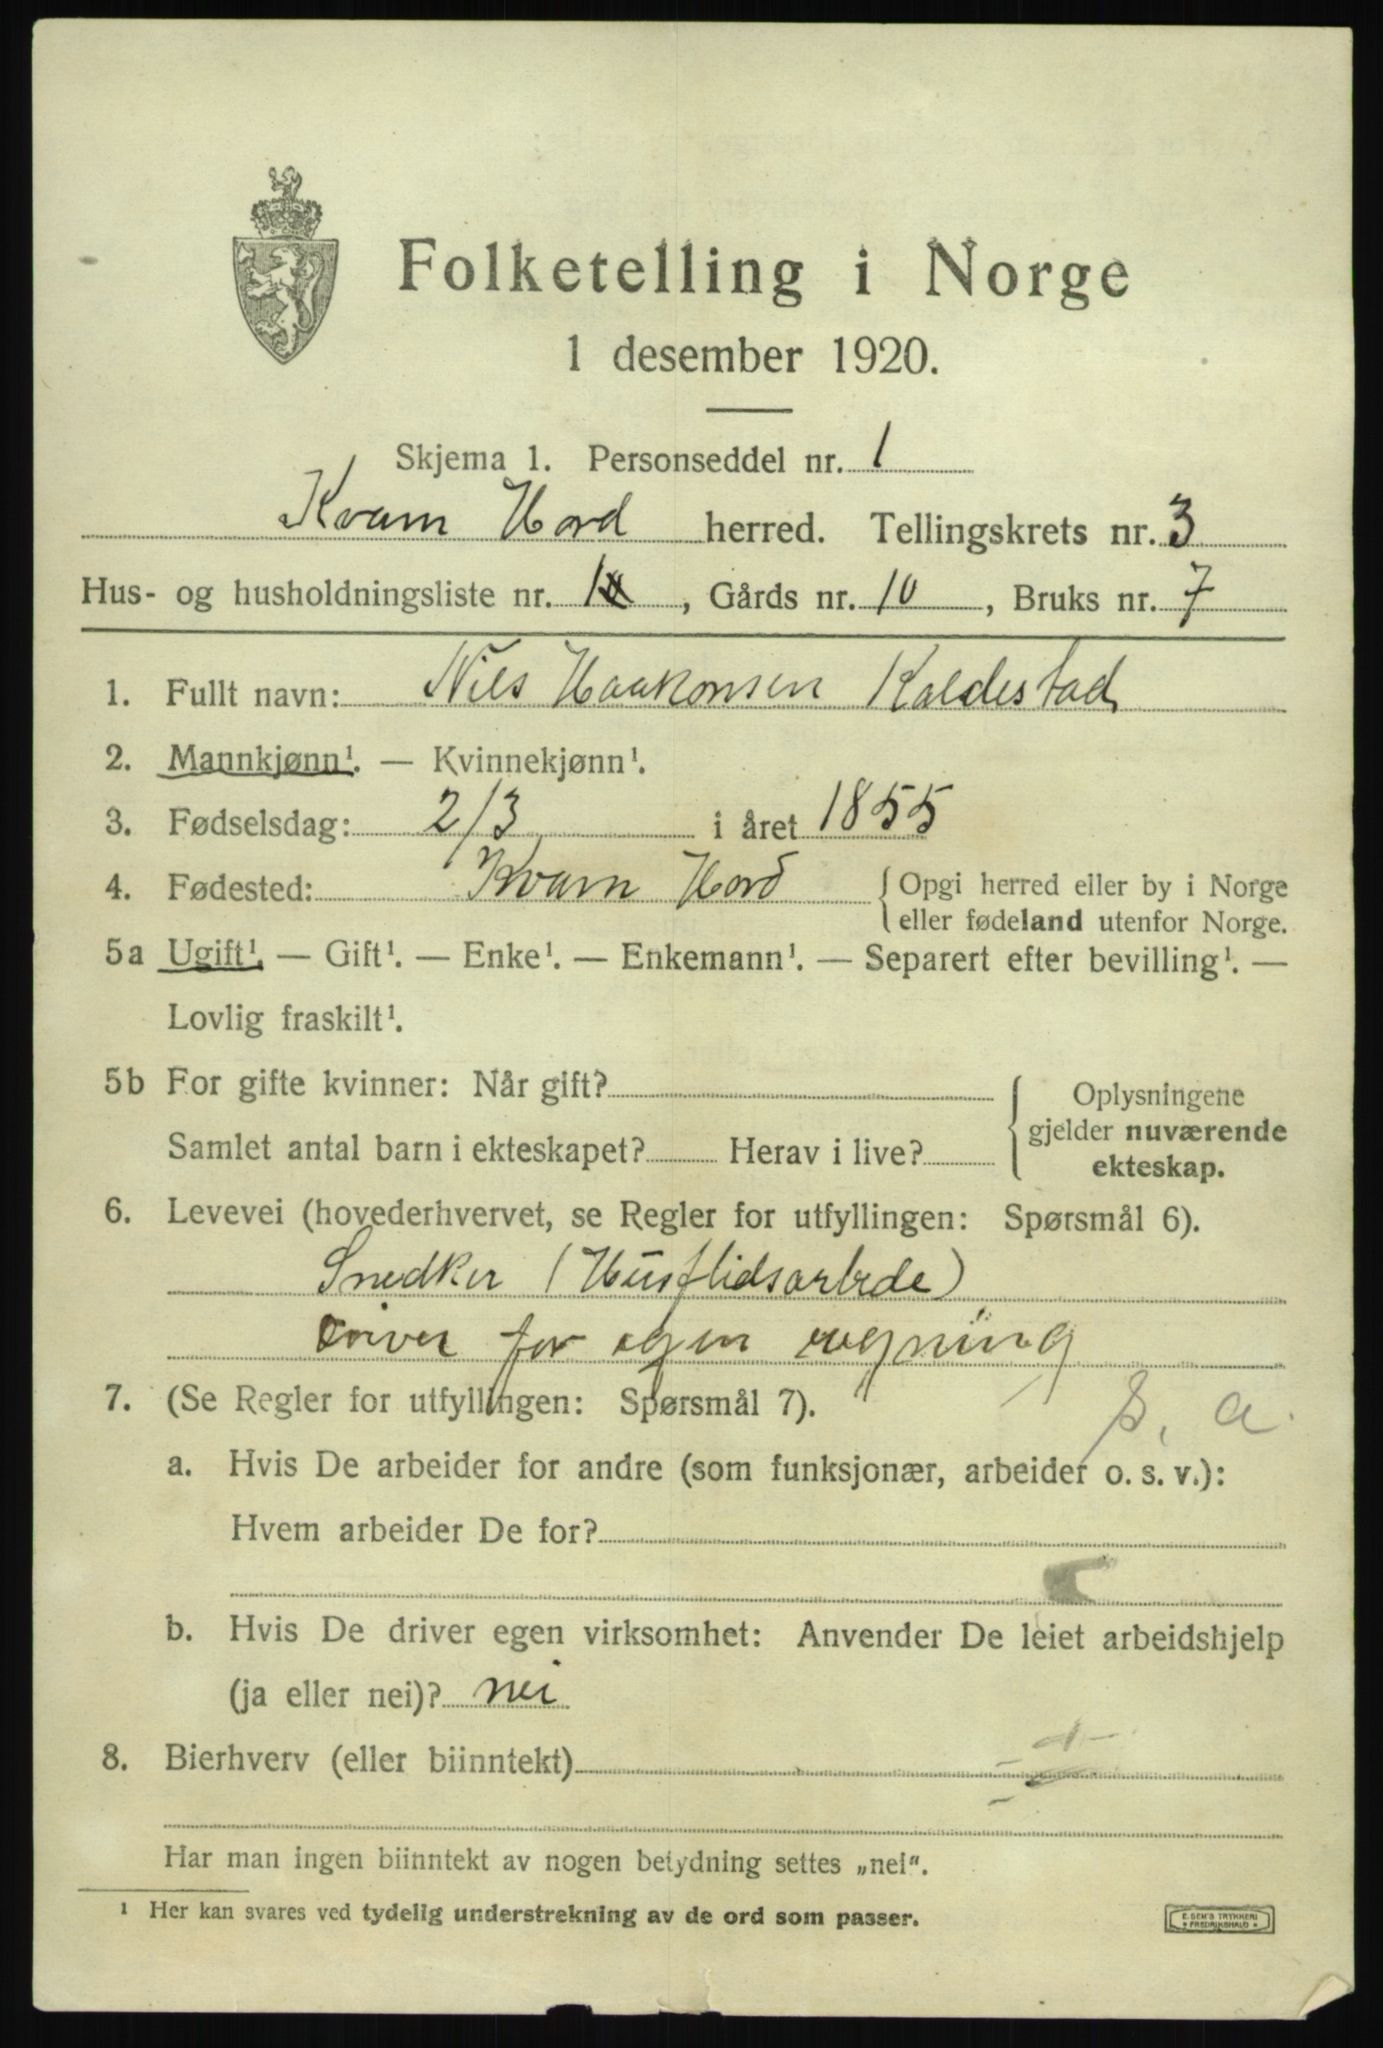 Folketelling i Norge
1 desember 1920.
Skjema 1. Personseddel nr. 1
Kvam Hord herred. Tellingskrets nr. 3
Hus- og husholdningsliste nr. 1, Gårds nr. 10, Bruks nr. 7
1. Fullt navn: Nils Haakonsen Kaldestad
2. Mannkjønn¹. — Kvinnekjønn¹.
3. Fødselsdag: 2/3 i året 1855
4. Fødested: Kvam Hord { Opgi herred eller by i Norge
eller fødeland utenfor Norge.
5a Ugift¹. — Gift¹. — Enke¹. — Enkemann¹. — Separert efter bevilling¹. —
Lovlig fraskilt¹.
5b For gifte kvinner: Når gift? { Oplysningene
gjelder nuværende
Samlet antal barn i ekteskapet? Herav i live? ekteskap.
6. Levevei (hovederhvervet, se Regler for utfyllingen: Spørsmål 6).
Snedker (Husflidsarbede)
Driver for egen regning
7. (Se Regler for utfyllingen: Spørsmål 7). a.
a. Hvis De arbeider for andre (som funksjonær, arbeider o. s. v.):
Hvem arbeider De for?
b. Hvis De driver egen virksomhet: Anvender De leiet arbeidshjelp
(ja eller nei)? nei
8. Bierhverv (eller biinntekt)
Har man ingen biinntekt av nogen betydning settes „nei“.
¹ Her kan svares ved tydelig understrekning av de ord som passer.
E. SEM'S TRYKKERI
FREDRIKSHALD